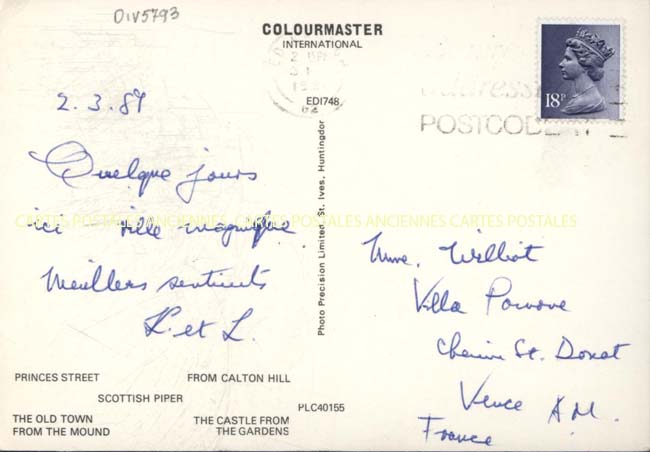 DIV5793
COLOURMASTER
INTERNATIONAL
EDI748
18P
POSTCODE
2.3.87
Quelque jours
ici ville magnifique
Meillers sentints
L. et L.
CARTES POSTALES ANCIENNES CARTES POSTALES ANCIENNES CARTES POSTALES
Photo Precision Limited, St. Ives, Huntingdon
Mme. Williot
Villa Pomone
Chemin St. Donat
Vence A.M.
France
PRINCES STREET
FROM CALTON HILL
SCOTTISH PIPER
PLC40155
THE OLD TOWN
FROM THE MOUND
THE CASTLE FROM
THE GARDENS